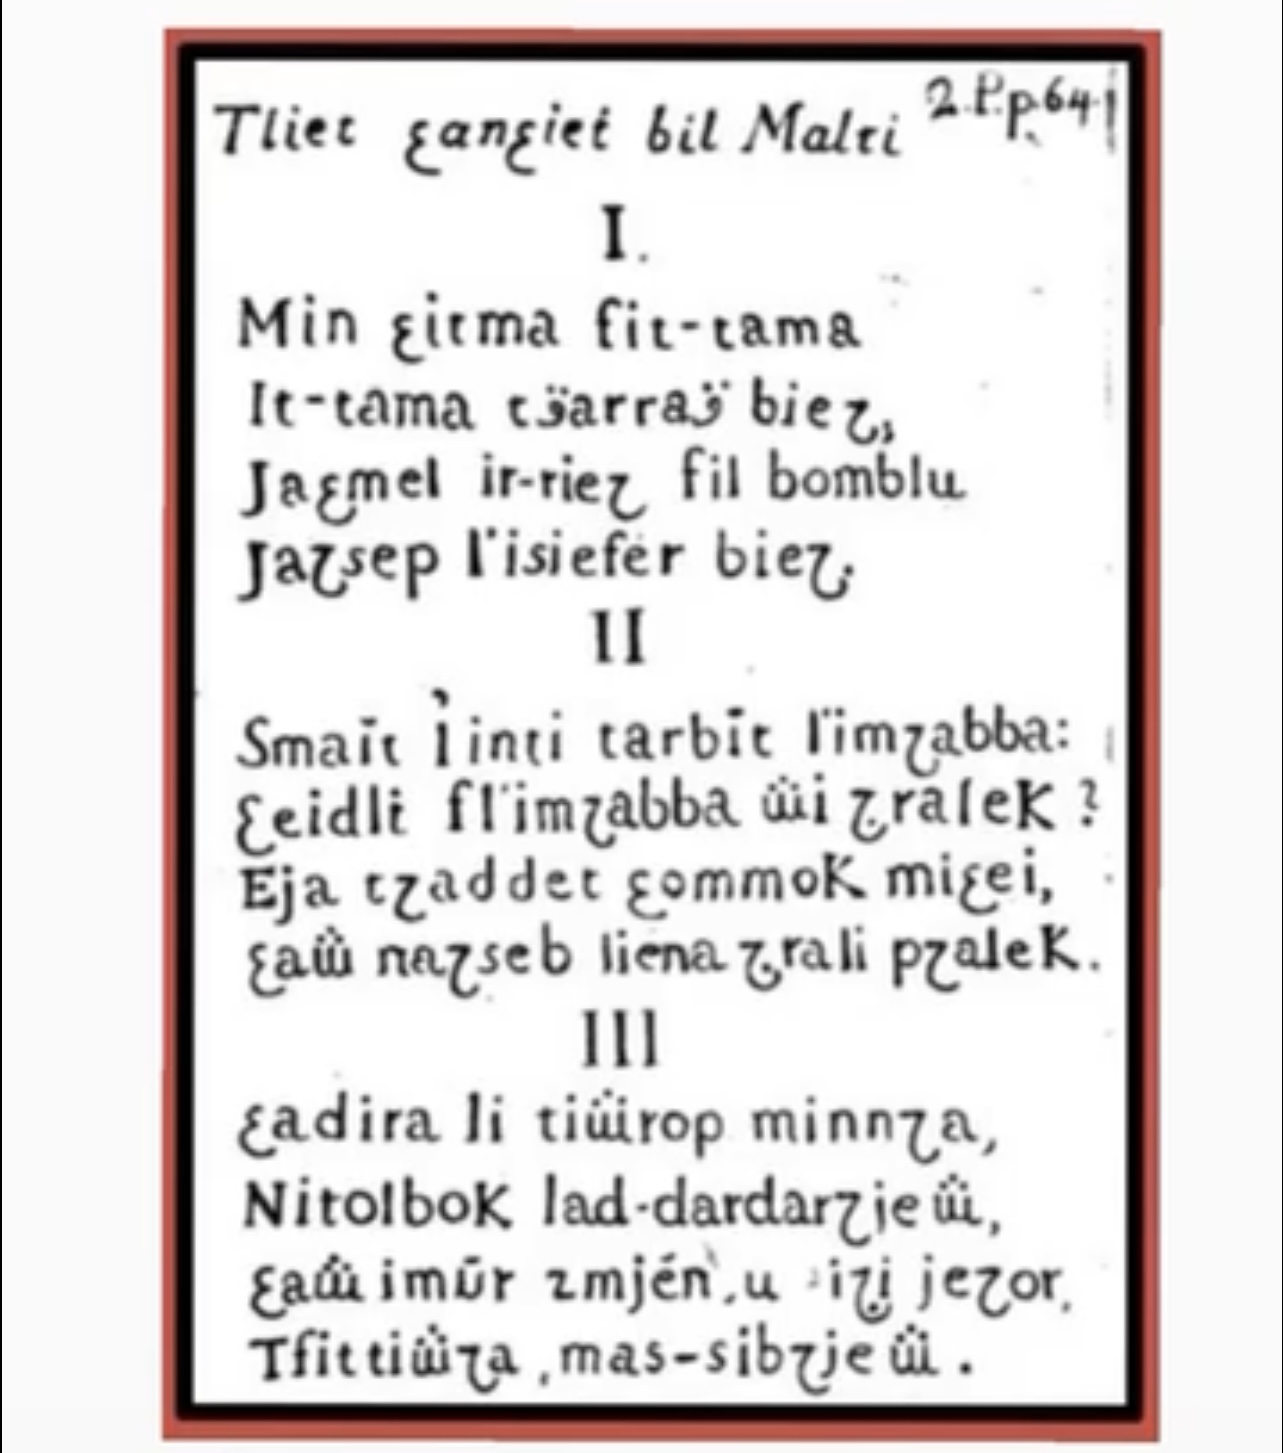 Tliet ꜫanꜫiet bil Malti 2.P.p.64
I.
Min ꜫitma fit-tama
It-tama tӟarraӟ bieꝣ,
Jaꜫmel ir-rieꝣ fil bomblu
Jaꝣsep l'isiefer bieꝣ.
II
Smaīt l'inti tarbīt l'imꝣabba:
Ꜫeidlt fl'imꝣabba ẅi ꝣralek?
Eja tꝣaddet ꜫommok miꜫei,
ꜫaẅ naꝣseb liena ꝣrali pꝣalek.
III
ꜫadira li tiẅirop minnꝣa,
Nitolbok lad-dardarꝣjeẅ,
ꜫaẅ imūr zmjén, u iꝣi jeꝣor,
Tfittiẅꝣa, mas-sibꝣjeẅ.